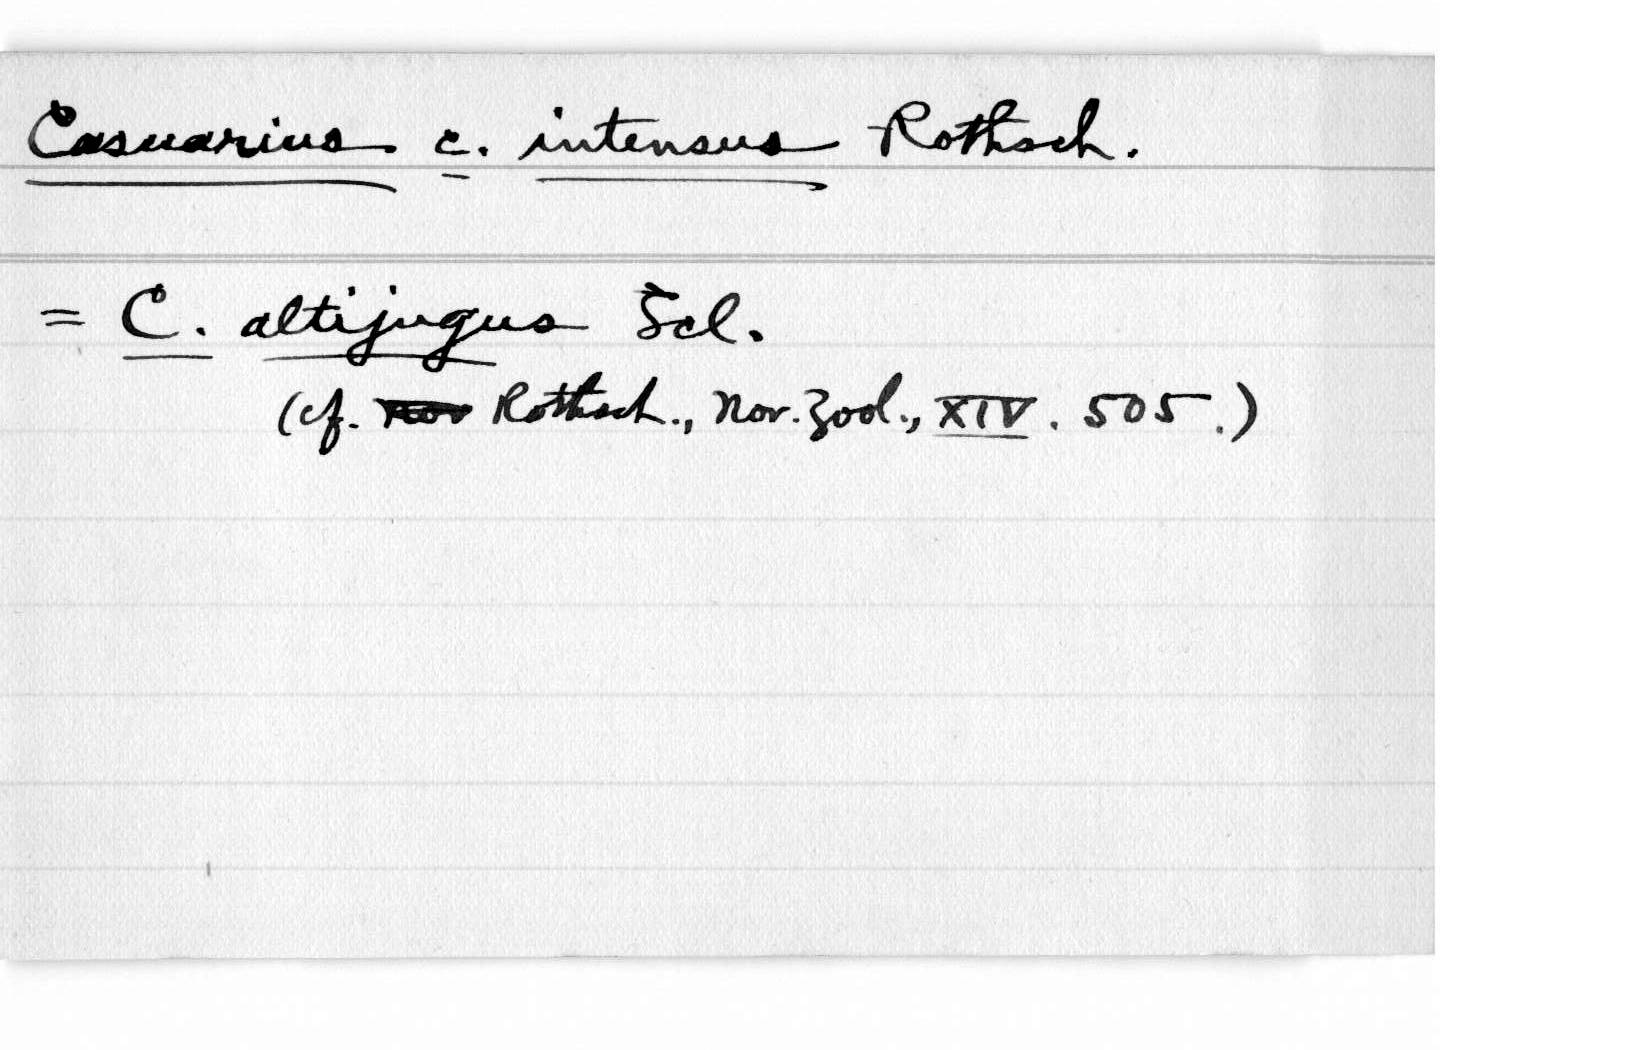 Casuarius c. intensus Rothsch.
= C. altijugus Scl.
(cf. Rothsch., Nov. Zool., XIV. 505.)